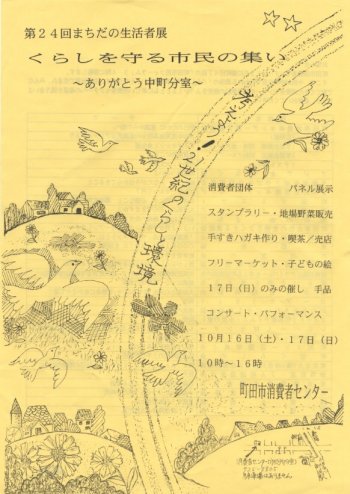 第24回まちだの生活者展
くらしを守る市民の集い
～ありがとう中町分室～
考えよう!21世紀のくらしと環境
消費者団体 パネル展示
スタンプラリー・地場野菜販売
手すきハガキ作り・喫茶／売店
フリーマーケット・子どもの絵
17日（日）のみの催し 手品
コンサート・パフォーマンス
10月16日（土）・17日（日）
10時～16時
町田市消費者センター